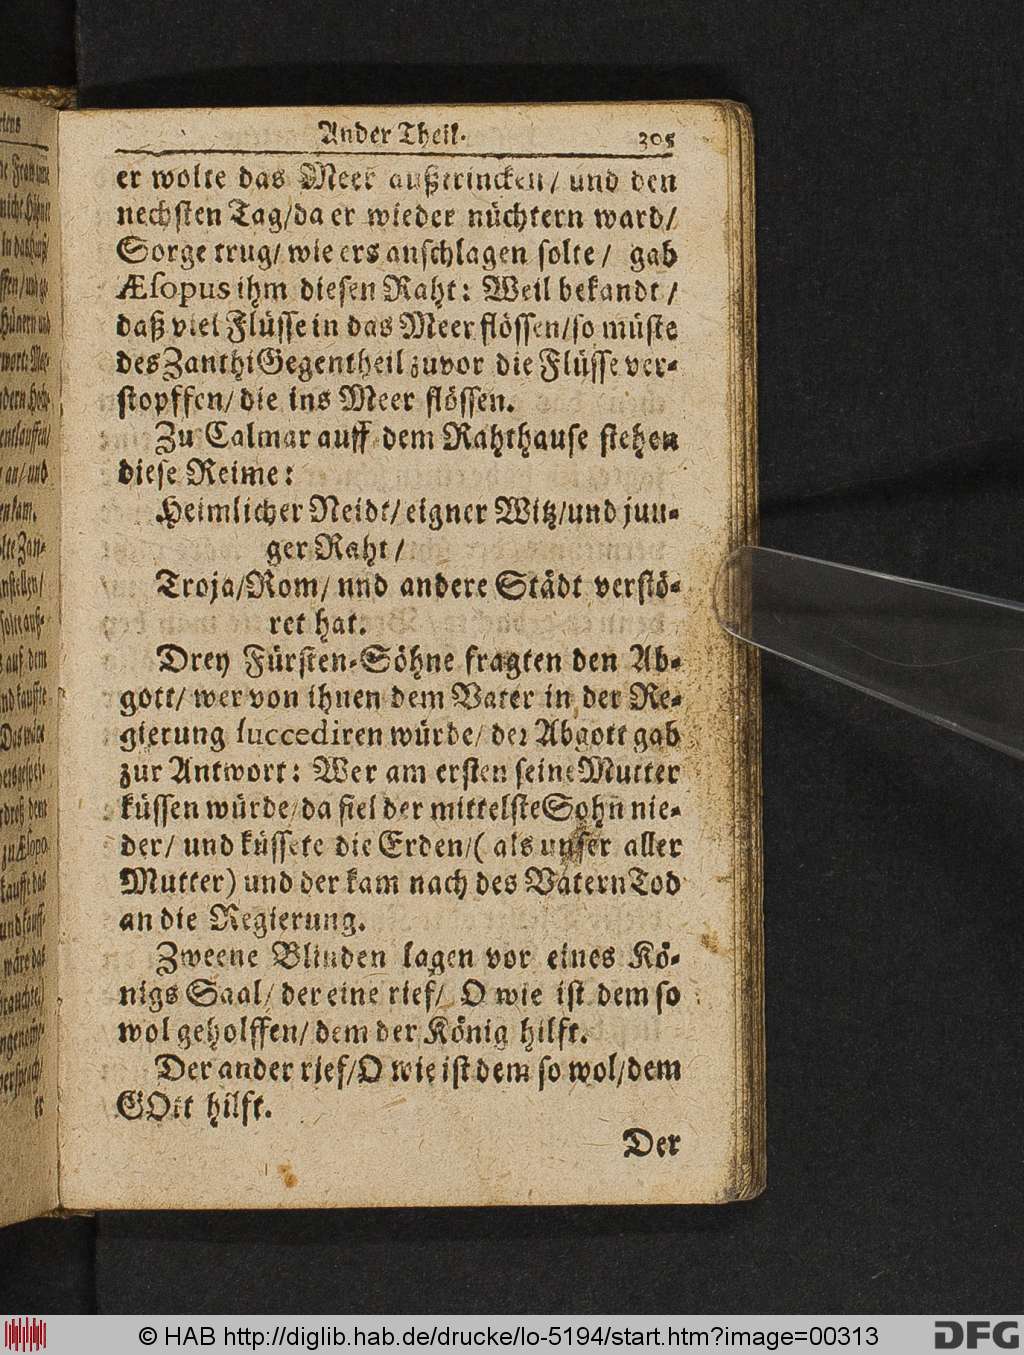 Ander Theil. 305
er wolte das Meer außtrincken / und den
nechsten Tag/da er wieder nüchtern ward/
Sorge trug/ wie ers anschlagen solte / gab
Æsopus ihm diesen Raht: Weil bekandt /
daß viel Flüsse in das Meer flössen/so müste
des Zanthi Gegentheil zuvor die Flüsse ver-
stopffen/ die ins Meer flössen.
Zu Calmar auff dem Rahthause stehen
diese Reime:
Heimlicher Neidt/ eigner Witz/und jun-
ger Raht /
Troja/Rom/ und andere Städt verstö-
ret hat.
Drey Fürsten-Söhne fragten den Ab-
gott/ wer von ihnen dem Vater in der Re-
gierung succediren würde/ der Abgott gab
zur Antwort: Wer am ersten seine Mutter
küssen würde/da fiel der mittelste Sohn nie-
der/ und küssete die Erden/( als unser aller
Mutter) und der kam nach des Vatern Tod
an die Regierung.
Zweene Blinden lagen vor eines Kö-
nigs Saal/ der eine rief/ O wie ist dem so
wol geholffen/ dem der König hilft.
Der ander rief/O wie ist dem so wol/dem
GOtt hilft.
Der
© HAB http://diglib.hab.de/drucke/lo-5194/start.htm?image=00313
DFG